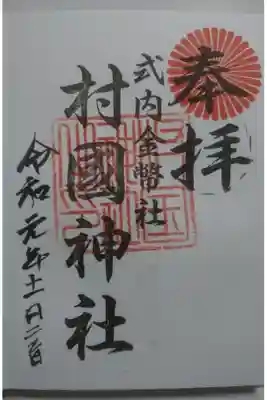 奉拝
式内金幣社
村國神社
令和元年十一月二日